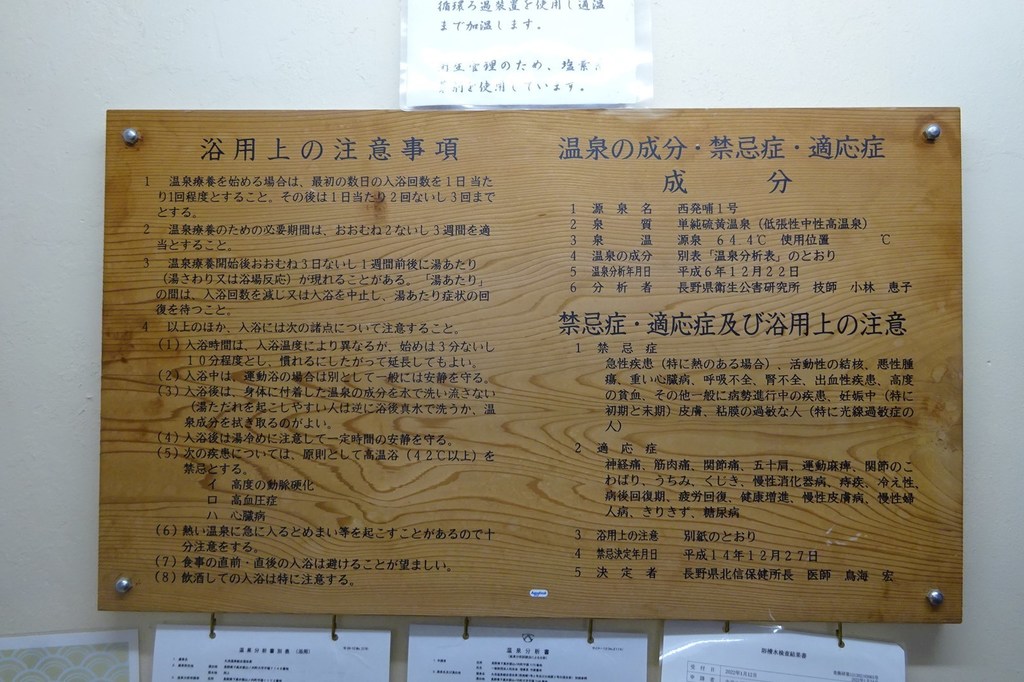 循環ろ過装置を使用し適温
まで加温します。
管理のため、塩素
剤を使用しています。
浴用上の注意事項
1 温泉療養を始める場合は、最初の数日の入浴回数を1日当た
り1回程度とすること。その後は1日当たり2回ないし3回まで
とする。
2 温泉療養のための必要期間は、おおむね2ないし3週間を適
当とすること。
3 温泉療養開始後おおむね3日ないし1週間前後に湯あたり
(湯さわり又は浴場反応)が現れることがある。「湯あたり」
の間は、入浴回数を減じ又は入浴を中止し、湯あたり症状の回
復を待つこと。
4 以上のほか、入浴には次の諸点について注意すること。
(1)入浴時間は、入浴温度により異なるが、始めは3分ないし
10分程度とし、慣れるにしたがって延長してもよい。
(2)入浴中は、運動浴の場合は別として一般には安静を守る。
(3)入浴後は、身体に付着した温泉の成分を水で洗い流さない
(湯ただれを起こしやすい人は逆に浴後真水で洗うか、温
泉成分を拭き取るのがよい。
(4)入浴後は湯冷めに注意して一定時間の安静を守る。
(5)次の疾患については、原則として高温浴(42℃以上)を
禁忌とする。
イ 高度の動脈硬化
ロ 高血圧症
ハ 心臓病
(6)熱い温泉に急に入るとめまい等を起こすことがあるので十
分注意をする。
(7)食事の直前・直後の入浴は避けることが望ましい。
(8)飲酒しての入浴は特に注意する。
温泉の成分・禁忌症・適応症
成 分
1 源泉名 西発哺1号
2 泉質 単純硫黄温泉(低張性中性高温泉)
3 泉温 源泉 64.4℃ 使用位置 ℃
4 温泉の成分 別表「温泉分析表」のとおり
5 温泉分析年月日 平成6年12月22日
6 分析者 長野県衛生公害研究所 技師 小林 恵子
禁忌症・適応症及び浴用上の注意
1 禁忌症
急性疾患(特に熱のある場合)、活動性の結核、悪性腫
瘍、重い心臓病、呼吸不全、腎不全、出血性疾患、高度
の貧血、その他一般に病勢進行中の疾患、妊娠中(特に
初期と末期)皮膚、粘膜の過敏な人(特に光線過敏症の
人)
2 適応症
神経痛、筋肉痛、関節痛、五十肩、運動麻痺、関節のこ
わばり、うちみ、くじき、慢性消化器病、痔疾、冷え性、
病後回復期、疲労回復、健康増進、慢性皮膚病、慢性婦
人病、きりきず、糖尿病
3 浴用上の注意 別紙のとおり
4 禁忌決定年月日 平成14年12月27日
5 決定者 長野県北信保健所長 医師 鳥海 宏
温泉分析書別表(浴用)
温泉分析書
浴槽水検査結果書